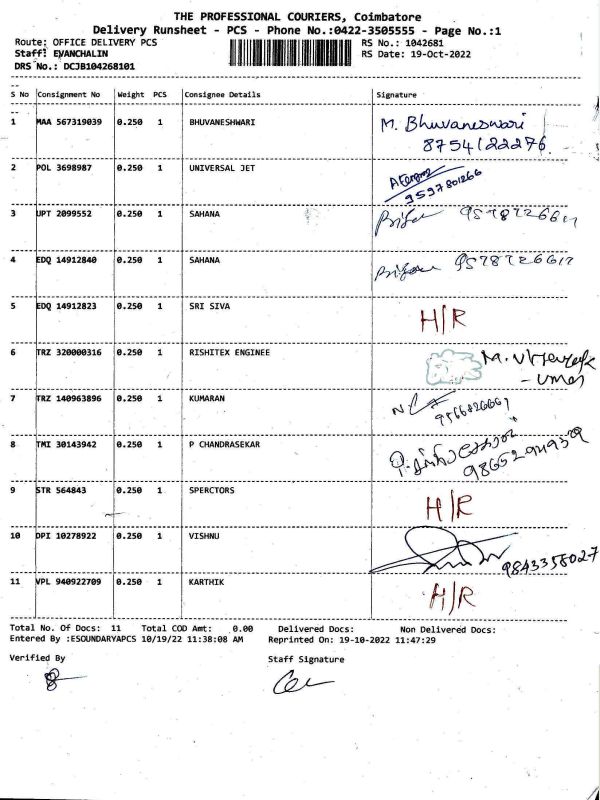 THE PROFESSIONAL COURIERS, Coimbatore
Delivery Runsheet - PCS - Phone No.:0422-3505555 - Page No.:1
Route: OFFICE DELIVERY PCS RS No.: 1042681
Staff: EVANCHALIN RS Date: 19-Oct-2022
DRS No.: DCJB104268101
S No Consignment No Weight PCS Consignee Details Signature
1 MAA 567319039 0.250 1 BHUVANESHWARI M. Bhuvaneswari
8754122276
2 POL 3698987 0.250 1 UNIVERSAL JET
9597801266
3 UPT 2099552 0.250 1 SAHANA
4 EDQ 14912840 0.250 1 SAHANA
5 EDQ 14912823 0.250 1 SRI SIVA H/R
6 TRZ 320000316 0.250 1 RISHITEX ENGINEE M.
7 TRZ 140963896 0.250 1 KUMARAN
8 TMI 30143942 0.250 1 P CHANDRASEKAR
9 STR 564843 0.250 1 SPERCTORS H/R
10 DPI 10278922 0.250 1 VISHNU
9843358027
11 VPL 940922709 0.250 1 KARTHIK H/R
Total No. Of Docs: 11 Total COD Amt: 0.00 Delivered Docs: Non Delivered Docs:
Entered By :ESOUNDARYAPCS 10/19/22 11:38:08 AM Reprinted On: 19-10-2022 11:47:29
Verified By Staff Signature